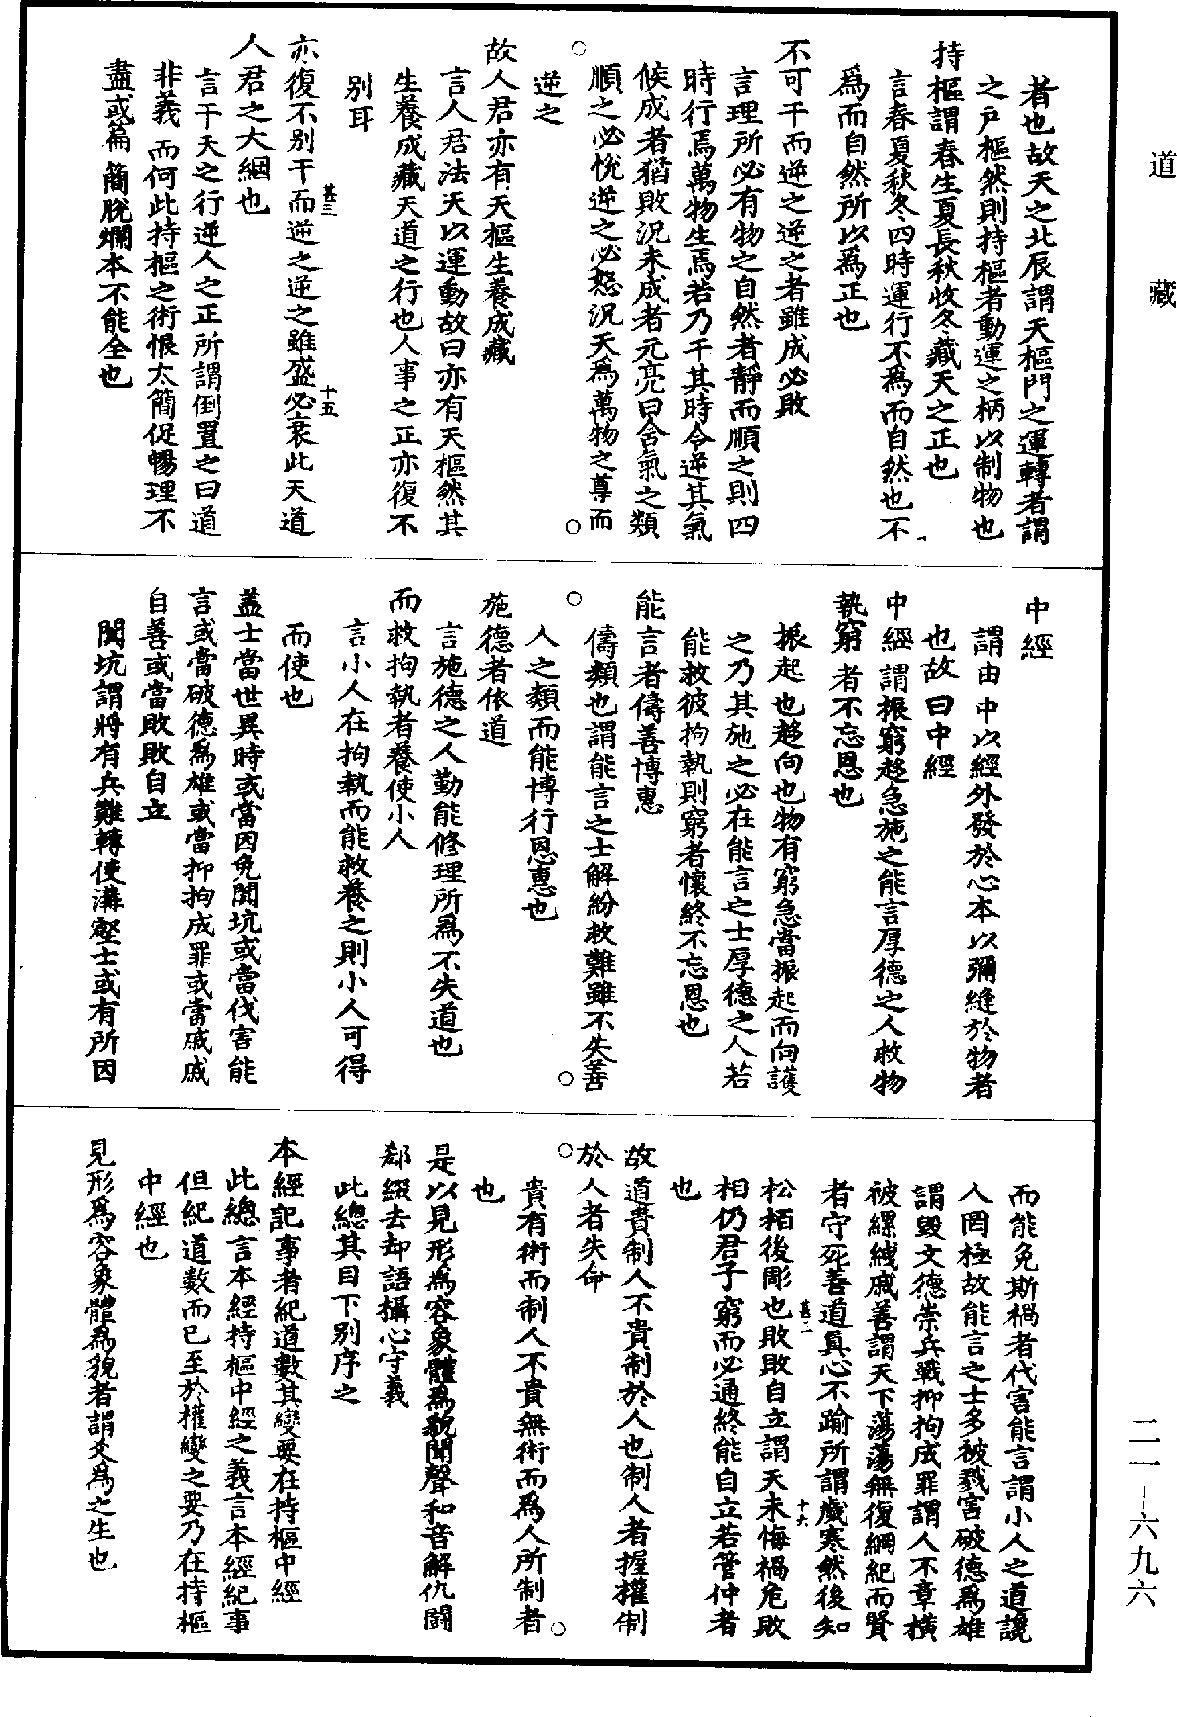 道藏
者也故天之北辰謂天樞門之運轉者謂
之戶樞然則持樞者動運之柄以制物也
持樞謂春生夏長秋收冬藏天之正也
言春夏秋冬四時運行不為而自然也不
為而自然所以為正也
不可干而逆之逆之者雖成必敗
言理所必有物之自然者靜而順之則四
時行焉萬物生焉若乃干其時令逆其氣
候成者猶敗況未成者元亮曰含氣之類
順之必悅逆之必怒況天為萬物之尊而
逆之
故人君亦有天樞生養成藏
言人君法天以運動故曰亦有天樞然其
生養成藏天道之行也人事之正亦復不
別耳
亦復不別干而逆之逆之雖盛必衰此天道
甚三
十五
人君之大綱也
言干天之行逆人之正所謂倒置之曰道
非義而何此持樞之術恨太簡促暢理不
盡或篇簡脫爛本不能全也
中經
謂由中以經外發於心本以彌縫於物者
也故曰中經
中經謂振窮趍急施之能言厚德之人救物
執窮者不忘恩也
振起也趍向也物有窮急當振起而向護
之乃其施之必在能言之士厚德之人若
能救彼拘執則窮者懷終不忘恩也
能言者儔善博惠
儔類也謂能言之士解紛救難雖不失善
人之類而能博行恩惠也
施德者依道
言施德之人勤能修理所為不失道也
而救拘執者養使小人
言小人在拘執而能救養之則小人可得
而使也
蓋士當世異時或當因免闐坑或當伐害能
言或當破德為雄或當抑拘成罪或當戚戚
自善或當敗敗自立
闐坑謂將有兵難轉使溝壑士或有所因
而能免斯禍者代害能言謂小人之道讒
人罔極故能言之士多被戮害破德為雄
謂毀文德崇兵戰抑拘成罪謂人不章橫
被縲紲戚善謂天下蕩蕩無復綱紀而賢
者守死善道真心不踰所謂歲寒然後知
松栢後彫也敗敗自立謂天未悔禍危敗
甚二
十六
相仍君子窮而必通終能自立若管仲者
也
故道貴制人不貴制於人也制人者握權制
於人者失命
貴有術而制人不貴無術而為人所制者
也
是以見形為容象體為貌聞聲和音解仇鬪
郄綴去却語攝心守義
此總其目下別序之
本經記事者紀道數其變要在持樞中經
此總言本經持樞中經之義言本經紀事
但紀道數而已至於權變之要乃在持樞
中經也
見形為容象體為貌者謂爻為之生也
二一－六九六